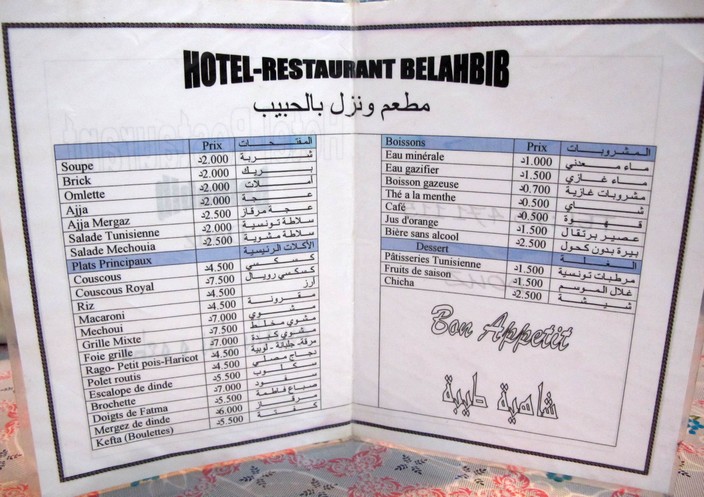 HOTEL-RESTAURANT BELAHBIB
مطعم ونزل بالحبيب
Prix المفتحات
Soupe 2.000د شربة
Brick 2.000د بريك
Omlette 2.000د
Ajja 2.000د عجة
Ajja Mergaz 2.500د عجة مرقاز
Salade Tunisienne 2.000د سلاطة تونسية
Salade Mechouia 2.500د سلاطة مشوية
Plats Principaux الأكلات الرئيسية
Couscous 4.500د كسكسي
Couscous Royal 7.500د كسكسي رويال
Riz 4.500د أرز
Macaroni 4.500د مقرونة
Mechoui 7.000د مشوي
Grille Mixte 7.500د مشوي مخلط
Foie grille 7.000د مشوي كبدة
Rago- Petit pois-Haricot 4.500د مرقة جلبانة لوبية
Polet routis 4.500د دجاج مصلي
Escalope de dinde 5.500د
Brochette 7.000د
Doigts de Fatma 5.500د صباع فاطمة
Mergez de dinde 6.000د مرقاز
Kefta (Boulettes) 5.500د كفتة
Boissons Prix المشروبات
Eau minérale 1.000د ماء معدني
Eau gazifier 1.500د ماء غازي
Boisson gazeuse 0.700د مشروبات غازية
Thé a la menthe 0.500د شاي
Café 0.500د قهوة
Jus d'orange 1.500د عصير برتقال
Bière sans alcool 2.500د بيرة بدون كحول
Dessert الغلة
Pâtisseries Tunisienne 1.500د مرطبات تونسية
Fruits de saison 1.500د غلال الموسم
Chicha 2.500د شيشة
Bon Appetit
شاهية طيبة